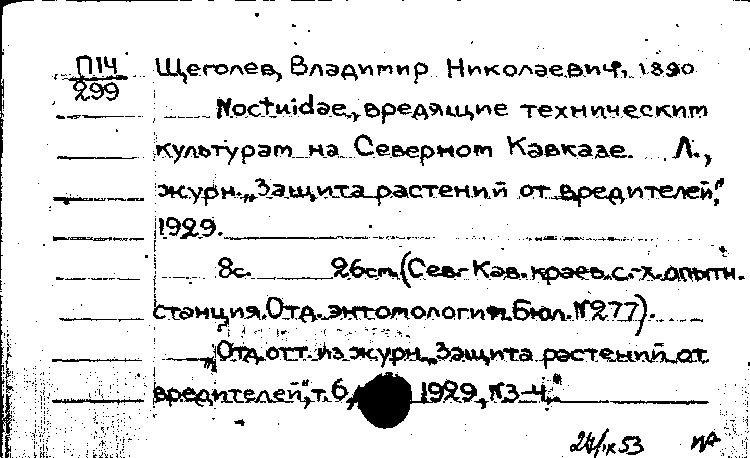 П14 Щеголев, Владимир Николаевич, 1890
299
Noctuidae, вредящие техническим
культурам на Северном Кавказе. Л.,
журн. „Защита растений от вредителей,"
1929.
8с. 26см. (Сев.-Кав. краев. с.-х. опытн.
станция. Отд. энтомологии. Бюл. №277).
„Отд. отт. из журн. „Защита растений от
вредителей", т. 6, 1929, №3-4."
24/IX 53